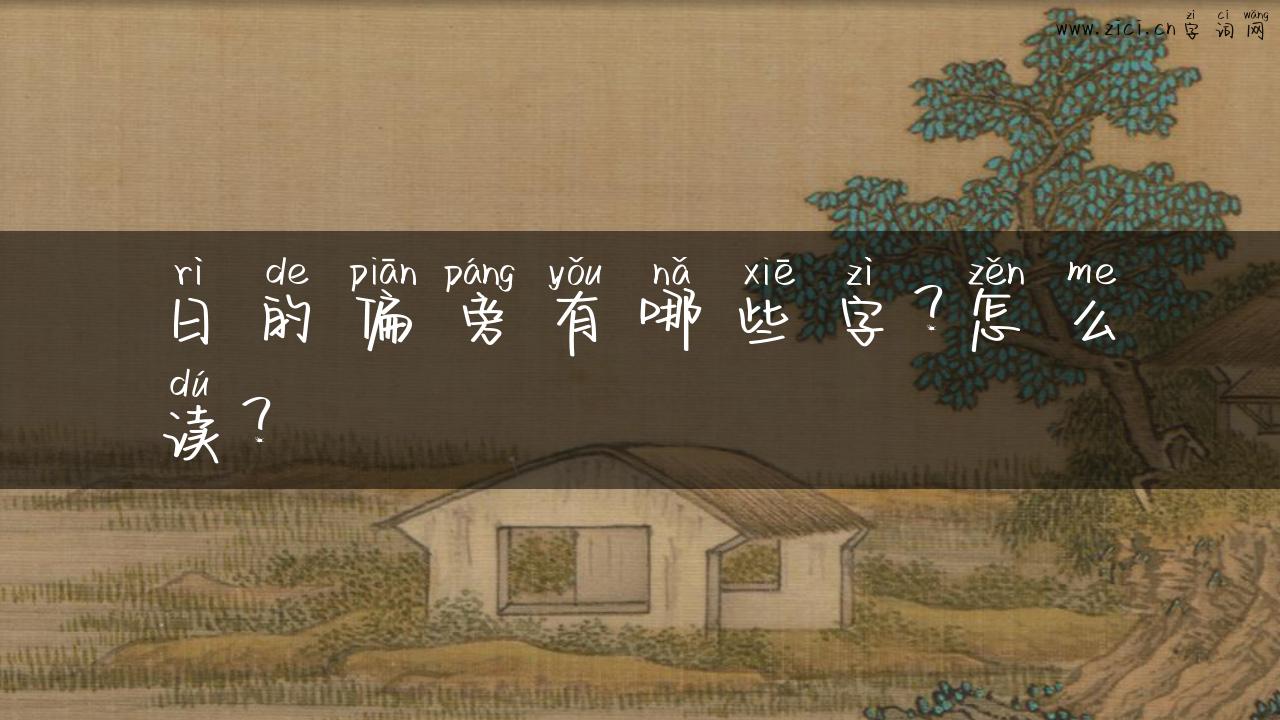 zì cí wǎng
www.zici.cn 字词网
rì de piān páng yǒu nǎ xiē zì zěn me
日的偏旁有哪些字?怎么
dú
读?